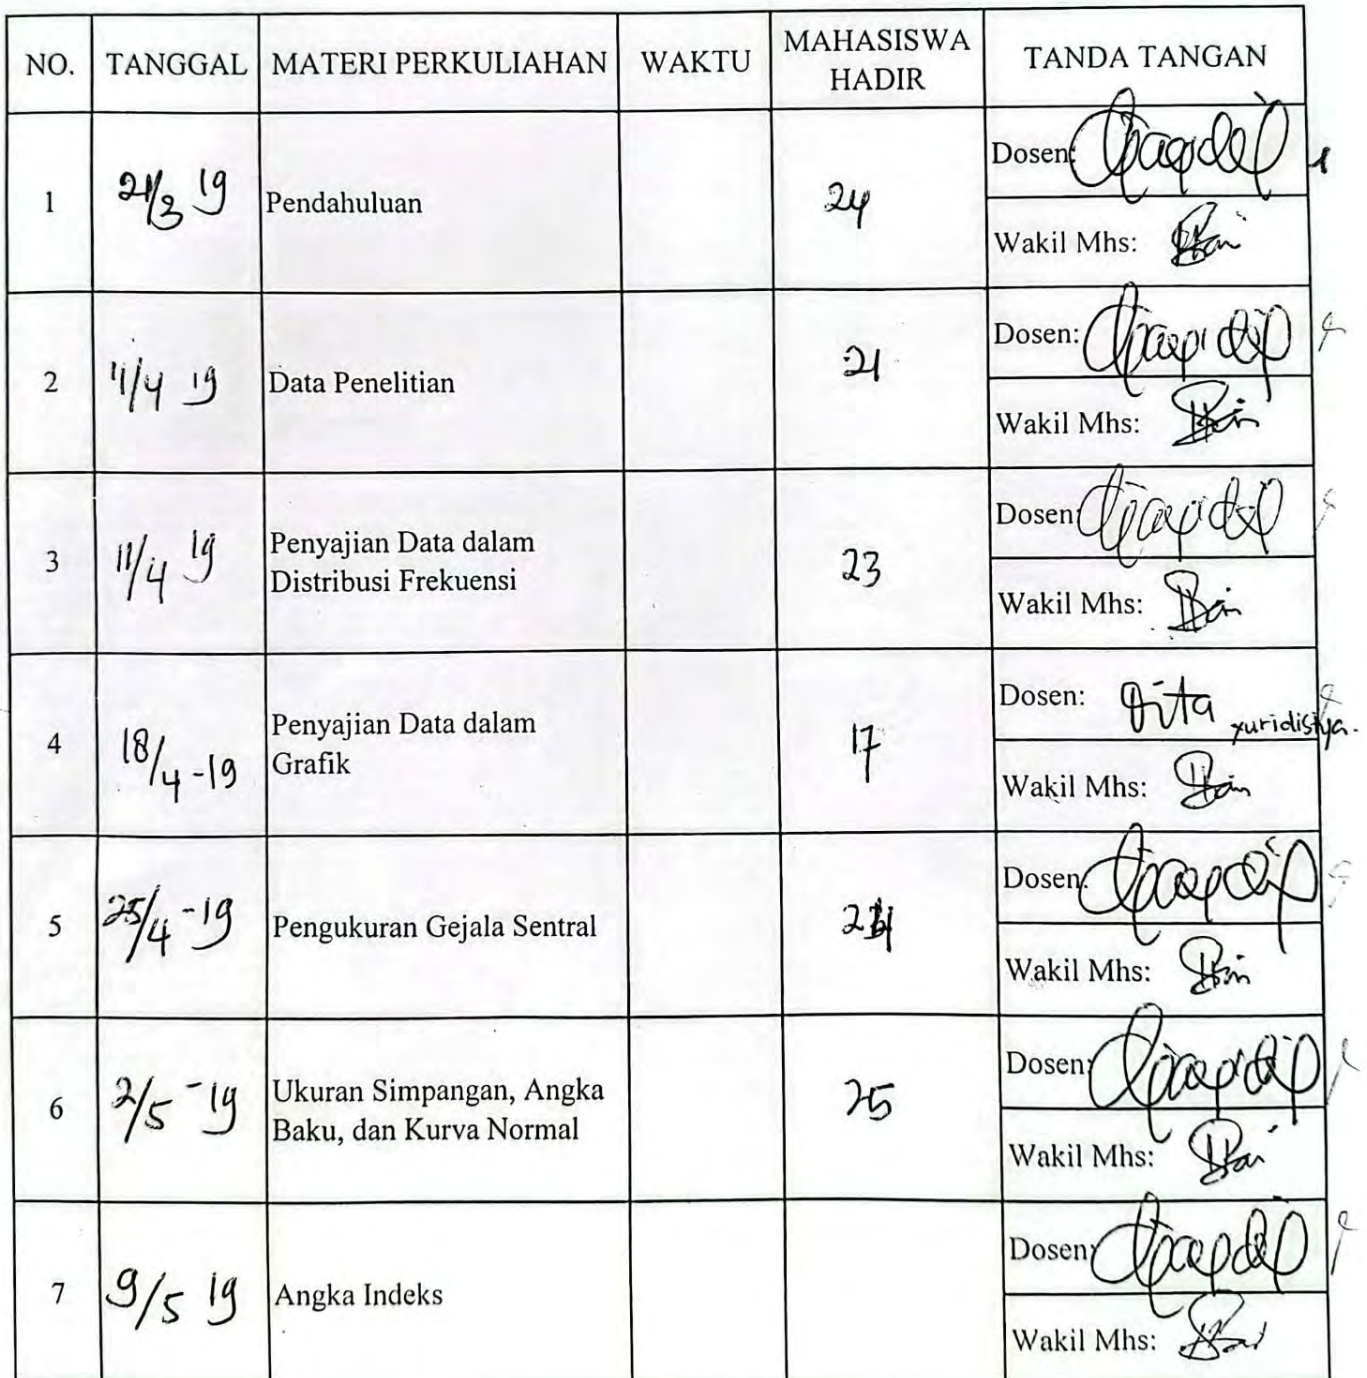 NO. TANGGAL MATERI PERKULIAHAN WAKTU MAHASISWA HADIR TANDA TANGAN
1 21/3 19 Pendahuluan 24 Dosen:
Wakil Mhs:
2 4/4 19 Data Penelitian 21 Dosen:
Wakil Mhs:
3 11/4 19 Penyajian Data dalam Distribusi Frekuensi 23 Dosen:
Wakil Mhs:
4 18/4-19 Penyajian Data dalam Grafik 17 Dosen: Gita yuridistya.
Wakil Mhs:
5 25/4-19 Pengukuran Gejala Sentral Dosen:
Wakil Mhs:
6 2/5-19 Ukuran Simpangan, Angka Baku, dan Kurva Normal 25 Dosen:
Wakil Mhs:
7 9/5 19 Angka Indeks Dosen:
Wakil Mhs: